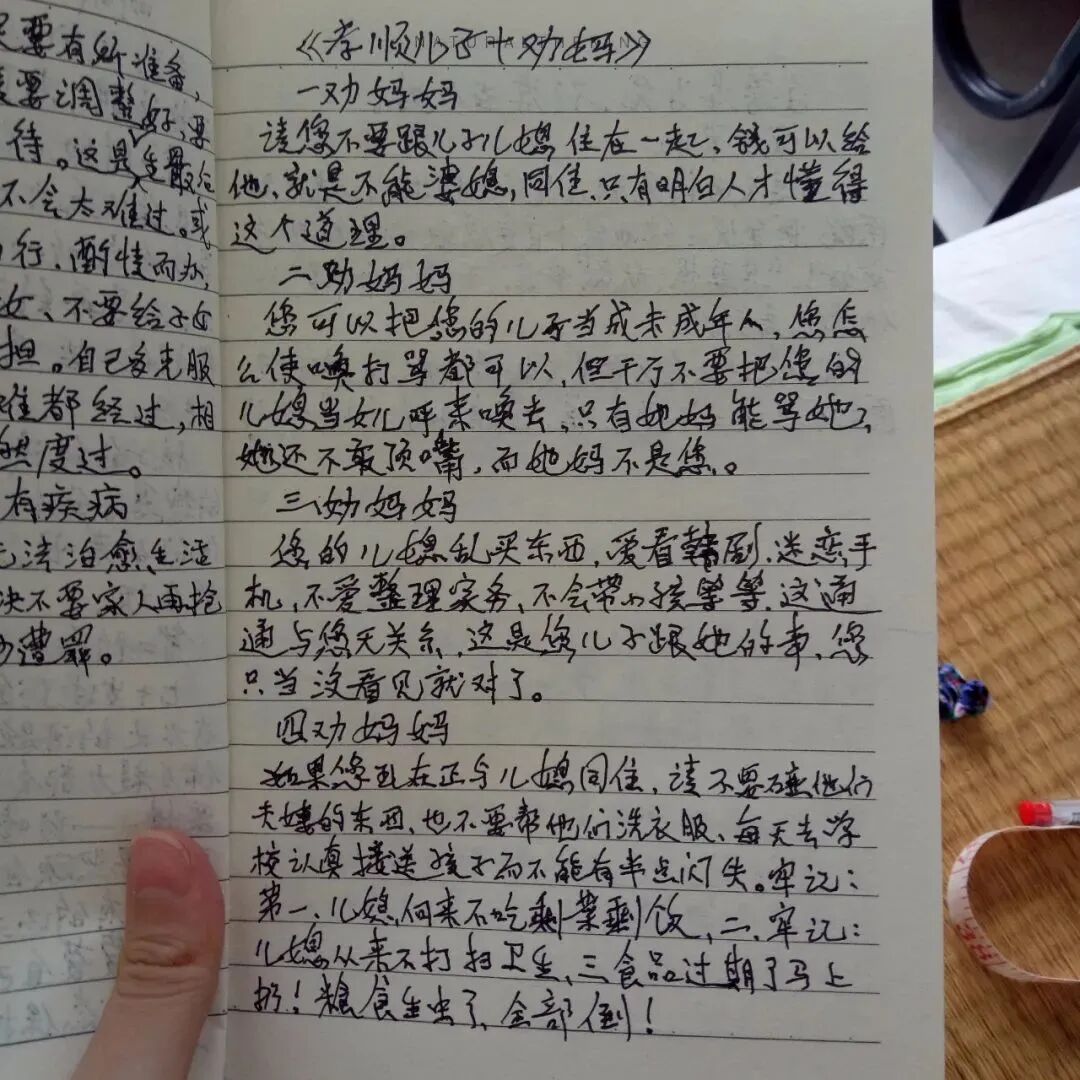 只要有所准备,
要调整好,要
待。这是生散
不会太难过。或
行、酌情而办,
女、不要给子女
担。自己多克服
难都经过,相
然度过。
有疾病
无法治愈生活
决不要家人再抢
遭罪。
《孝顺儿子十劝妈》
一劝妈妈
请您不要跟儿子儿媳住在一起、钱可以给
他、就是不能婆媳,同住.只有明白人才懂得
这个道理。
二劝妈妈
您可以把您的儿子当成未成年人,您怎
么使唤打骂都可以,但千万不要把您的
儿媳当女儿呼来唤去,只有她妈能骂她,
她还不敢顶嘴,而她妈不是您。
三劝妈妈
您的儿媳乱买东西,爱看韩剧,迷恋手
机,不爱整理家务,不会带小孩等等,这通
通与您无关系,这是您儿子跟她的事,您
只当没看见就对了。
四劝妈妈
如果您现在正与儿媳同住,请不要碰他们
夫妻的东西,也不要帮他们洗衣服、每天去学
校认真接送孩子而不能有半点闪失。牢记:
第一、儿媳何来不吃剩菜剩饭,二、牢记:
儿媳从来不打扫卫生,三食品过期了马上
扔!粮食生虫了,全部倒!